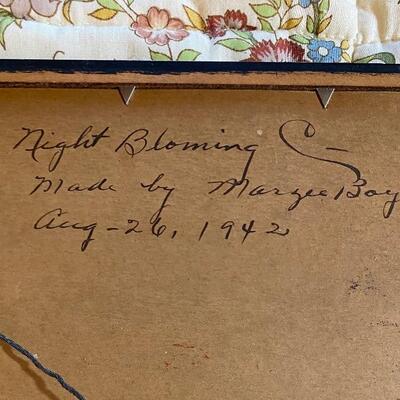 Night Bloming C-
Made by Margee Boy
Aug-26, 1942